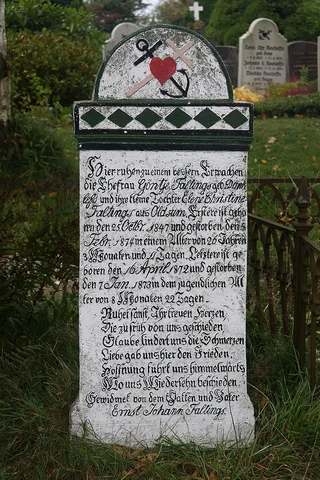 Hier ruhen zu einem bessern Erwachen
die Ehefrau Göntje Faltings geb. Dank-
leff und ihre kleine Tochter Elena Christine
Faltings aus Oldsum. Erstere ist gebo
ren den 25 Octbr. 1847 und gestorben den 5
Febr. 1874 in einem Alter von 26 Jahren
3 Monaten und 11 Tagen. Letztere ist ge
boren den 16 April 1872 und gestorben
den 7 Jan. 1873 in dem jugendlichen Al-
ter von 8 Monaten 22 Tagen.
Ruhet sanft, Ihr treuen Herzen,
Die zu früh von uns geschieden,
Glaube lindert uns die Schmerzen
Liebe gab uns hier den Frieden.
Hoffnung führt uns himmelwärts
Wo uns Wiedersehn beschieden.
Gewidmet von dem Gatten und Vater
Ernst Johann Faltings.